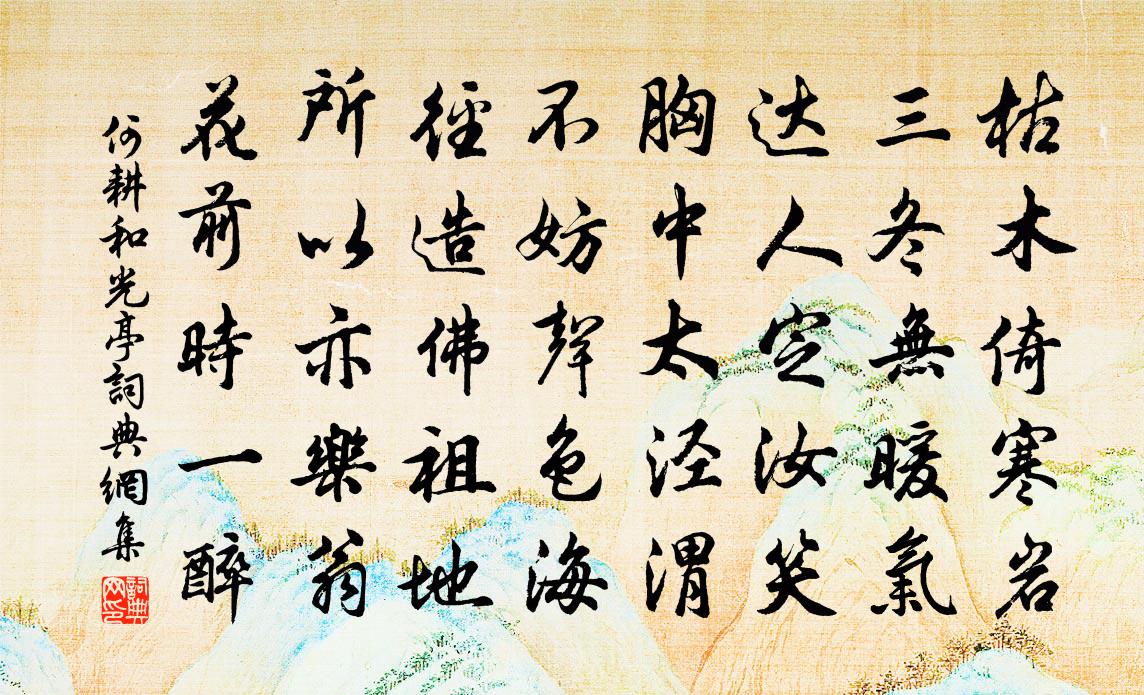 枯木倚寒岩
三冬無暖氣
达人定汝笑
胸中太泾渭
不妨聲色海
徑造佛祖地
所以亦樂翁
花前時一醉
何耕和光亭詞典網集
詞典网印